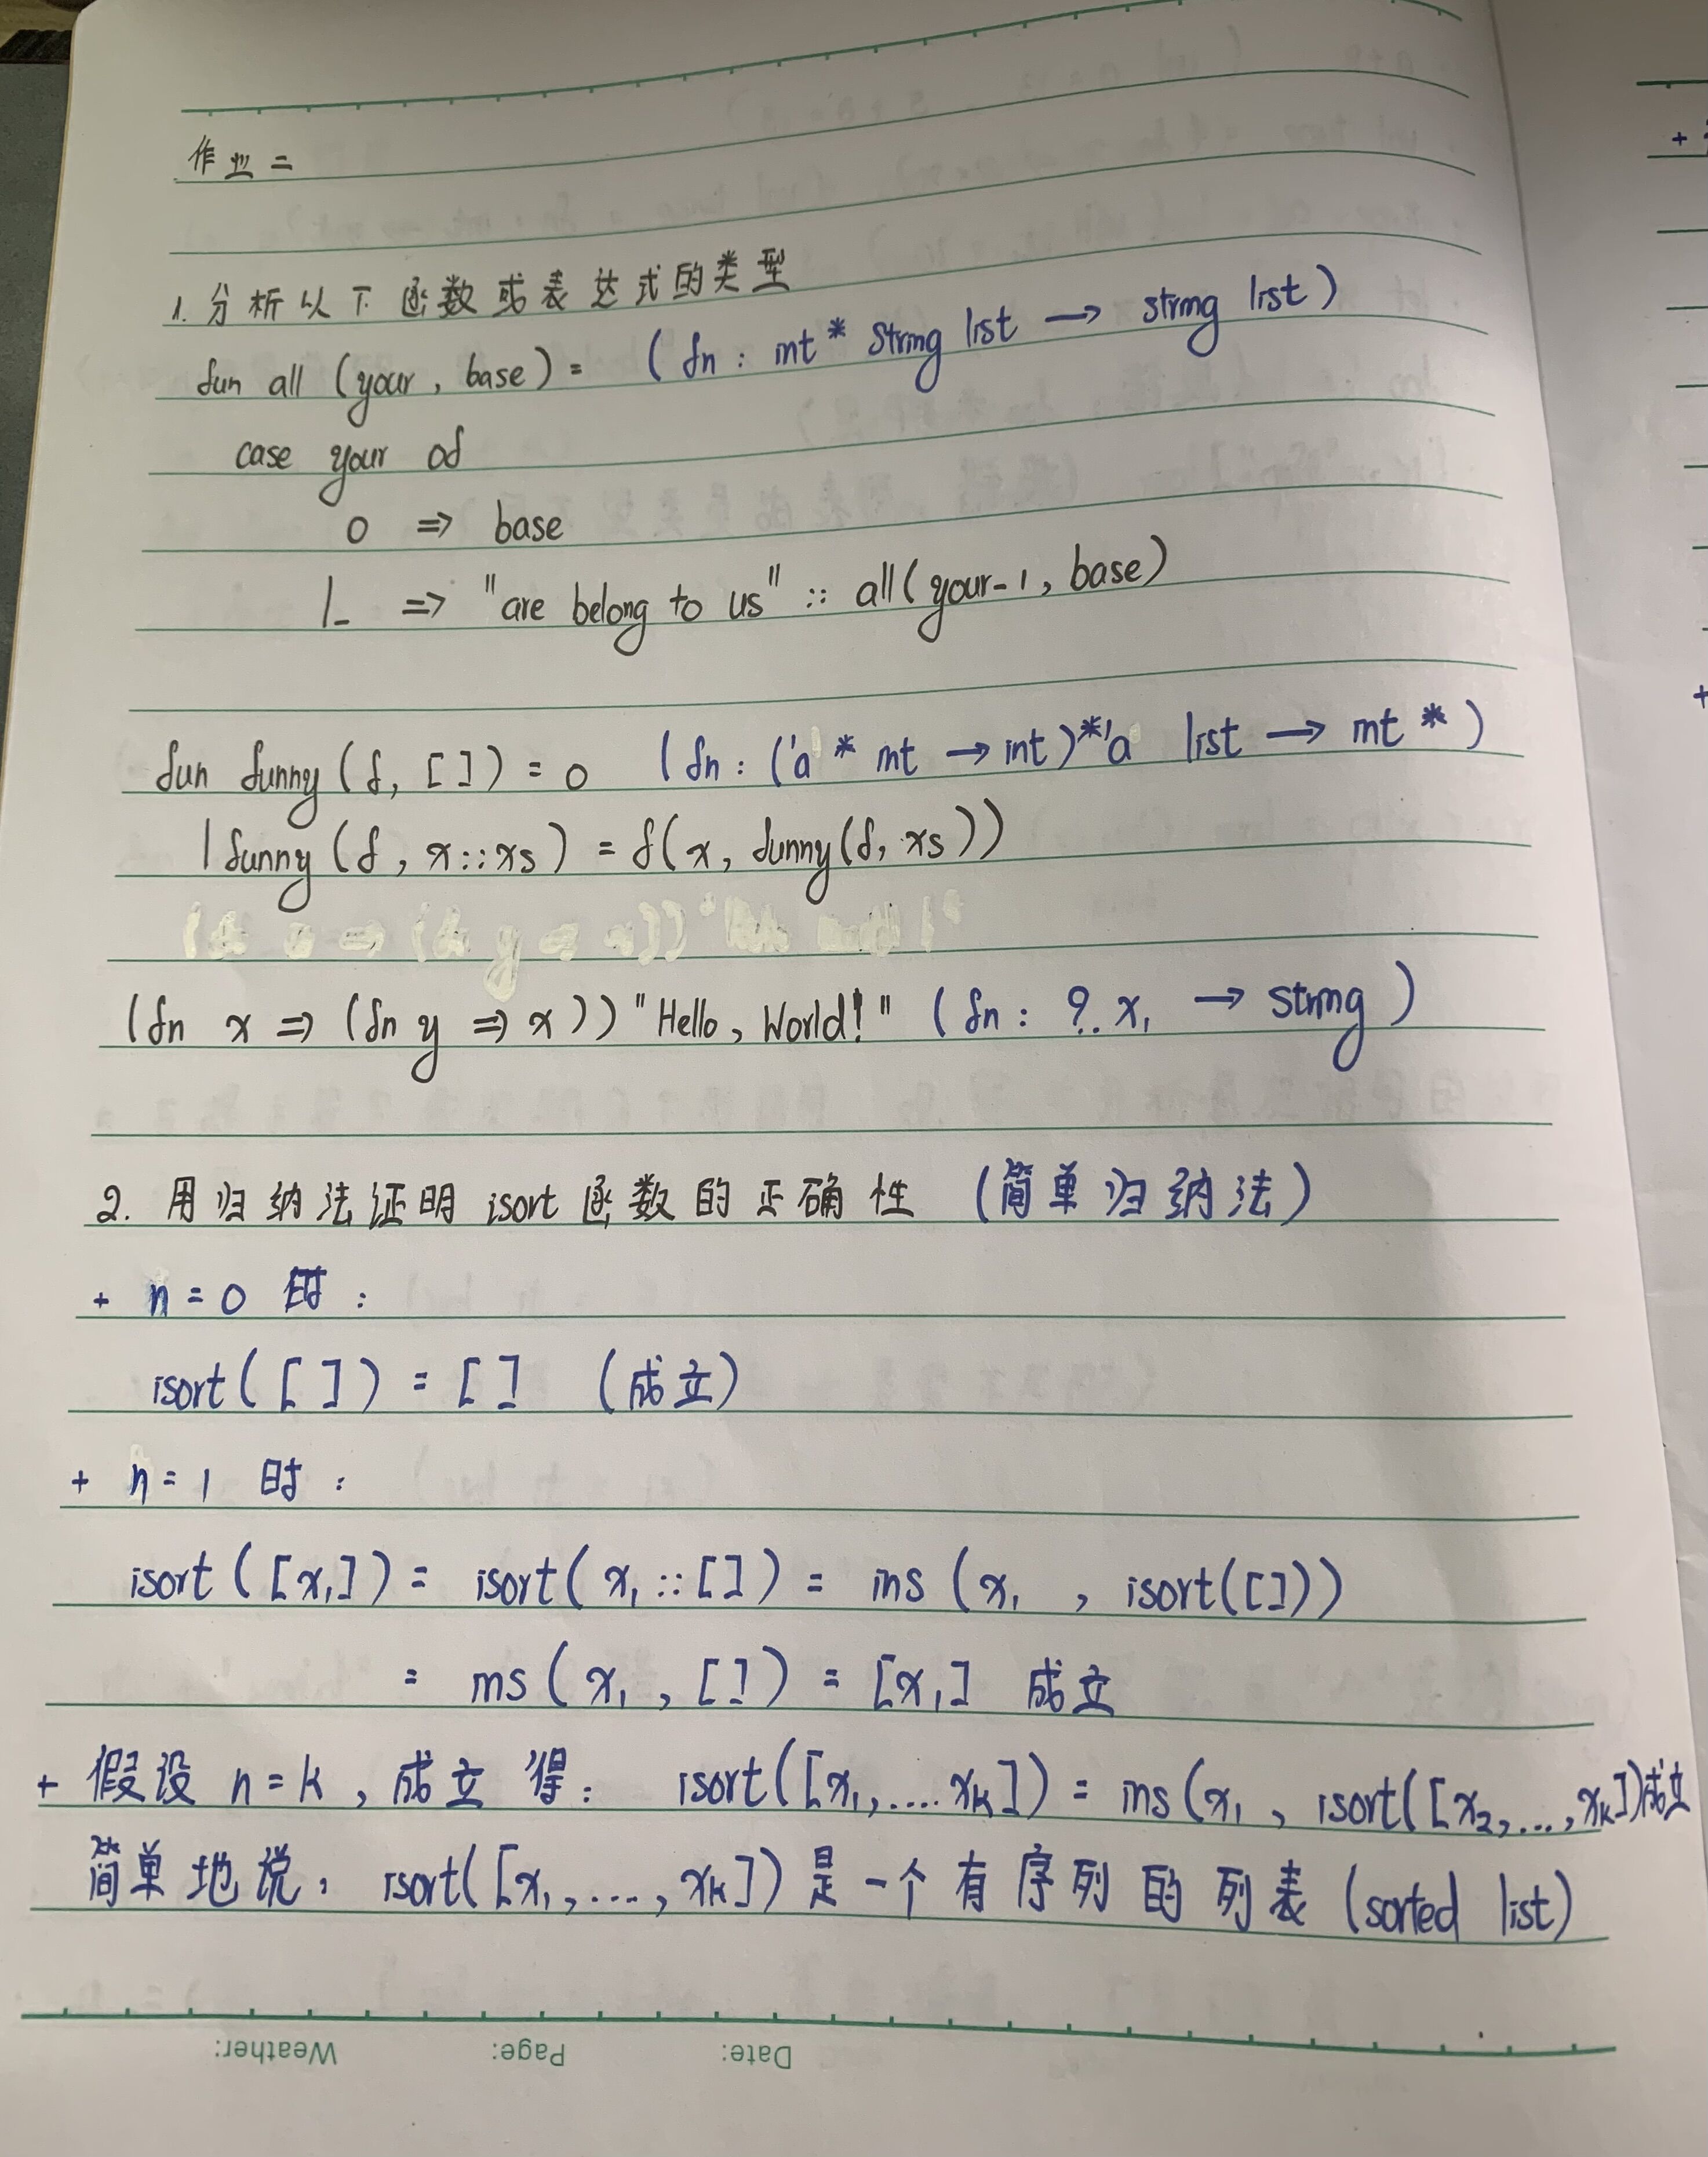 作业二
1. 分析以下函数或表达式的类型
fun all (your, base) = (fn : int * string list → string list)
case your of
0 => base
|_ => "are belong to us" :: all(your-1, base)
fun funny (f, []) = 0 (fn : ('a * int → int)*'a list → int *)
|funny (f, x::xs) = f(x, funny(f, xs))
(fn x => (fn y => x)) "Hello, World!" (fn : ?. x₁ → string)
2. 用归纳法证明 isort 函数的正确性 (简单归纳法)
+ n=0 时:
isort([]) = [] (成立)
+ n=1 时:
isort([x₁]) = isort(x₁::[]) = ins(x₁, isort([]))
= ins(x₁, []) = [x₁] 成立
+ 假设 n=k, 成立 得: isort([x₁,....xₖ]) = ins(x₁, isort([x₂,...,xₖ])成立
简单地说, isort([x₁,...,xₖ]) 是一个有序列的列表 (sorted list)
Date: Page: Weather: